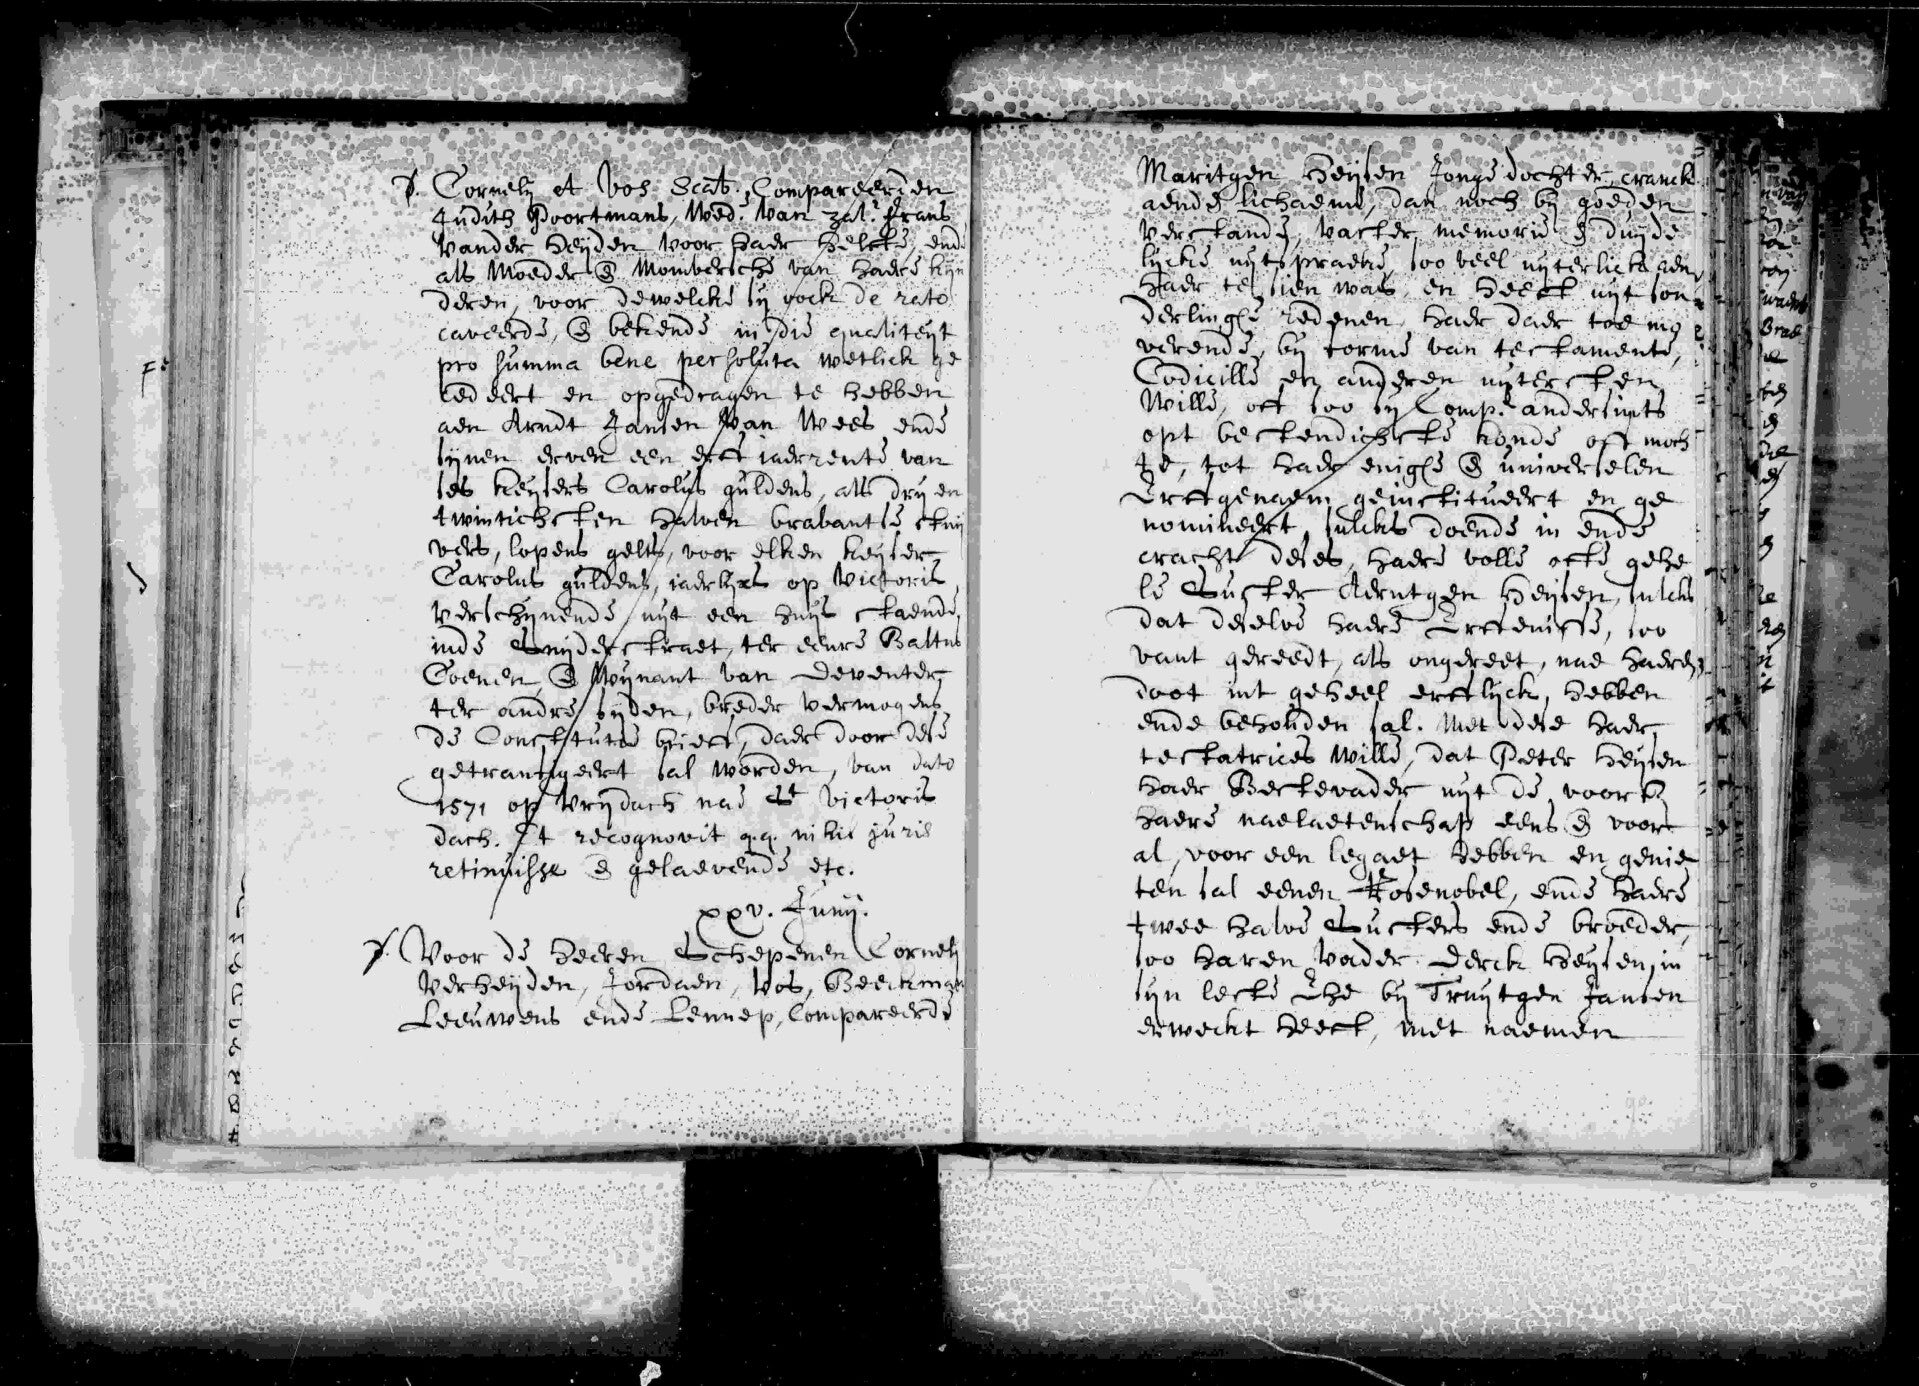 Cornely et Vos Scab. Compareerden
Judith Poortmans, Wed.e van zal.r Frans
vander Heyden voor haer helfte, ende
als Moeder & Mombersche van haere kyn
deren, voor dewelcke sy oock de rato
caveerde, & bekende in die qualiteyt
pro summa bene persoluta wetlick ge
cedeert en opgedragen te hebben
aen Arndt Jansen van Wees ende
synen erven een erff jaerrente van
ses keysers Carolus guldens, als dry en
twintichsten halven brabantse stuy
vers, lopens gelts, voor elken keyser
Carolus guldens, jaerlyxs op Victoris
verschynende uyt een huys staende
inde Snyderstraet, ter eenre Baltus
Coenen & Wynant van Deventer
ter andre syden, breder vermogens
de Constitutie brieff, daer door dese
getransigeert sal worden, van dato
1571 op Vrydach nae St Victoris
dach. Et recognovit q.q. nihil juris
retinuisse & gelaevende etc.
xxv. Junij.
Voor de Heeren Schepenen Cornely
Verheyden, Jordaen, Vos, Beeckman
Leeuwens ende Lennep, Compareerde
Maritgen Heysen Jonge dochter, cranck
aende lichaeme, dan noch by goeden
verstande, vaster memorie & duyde
lycke uytspraeke, soo veel uyterlick aen
haer te sien was, en heeft uyt son
derlinge redenen, haer daer toe mo
verende, by forme van testamente,
Codicille en anderen uytersten
Wille, oft soo sy Comp.e andersints
opt bestendichste konde oft moch
te, tot haer enige & universelen
Erffgenaem geinstitueert en ge
nomineert, sulcks doende in ende
cracht deses, haere volle ofte gehe
le Suster Aerntgen Heysen, sulcks
dat deselve haere Erffenisse, soo
vant gereedt, als ongereet, nae haeren
doot int geheel erfflyck hebben
ende behouden sal. Met dese haer
testatrices wille, dat Peter Heysen
haer Bestevader uyt de voors
haere naelaetenschap eens & voor
al, voor een legaet hebben en genie
ten sal eenen Rosenobel, ende haere
twee halve Susters ende broeder,
soo haren Vader Derck Heysen in
syn leste Ehe by Truytgen Jansen
erweckt heeft, met naemen